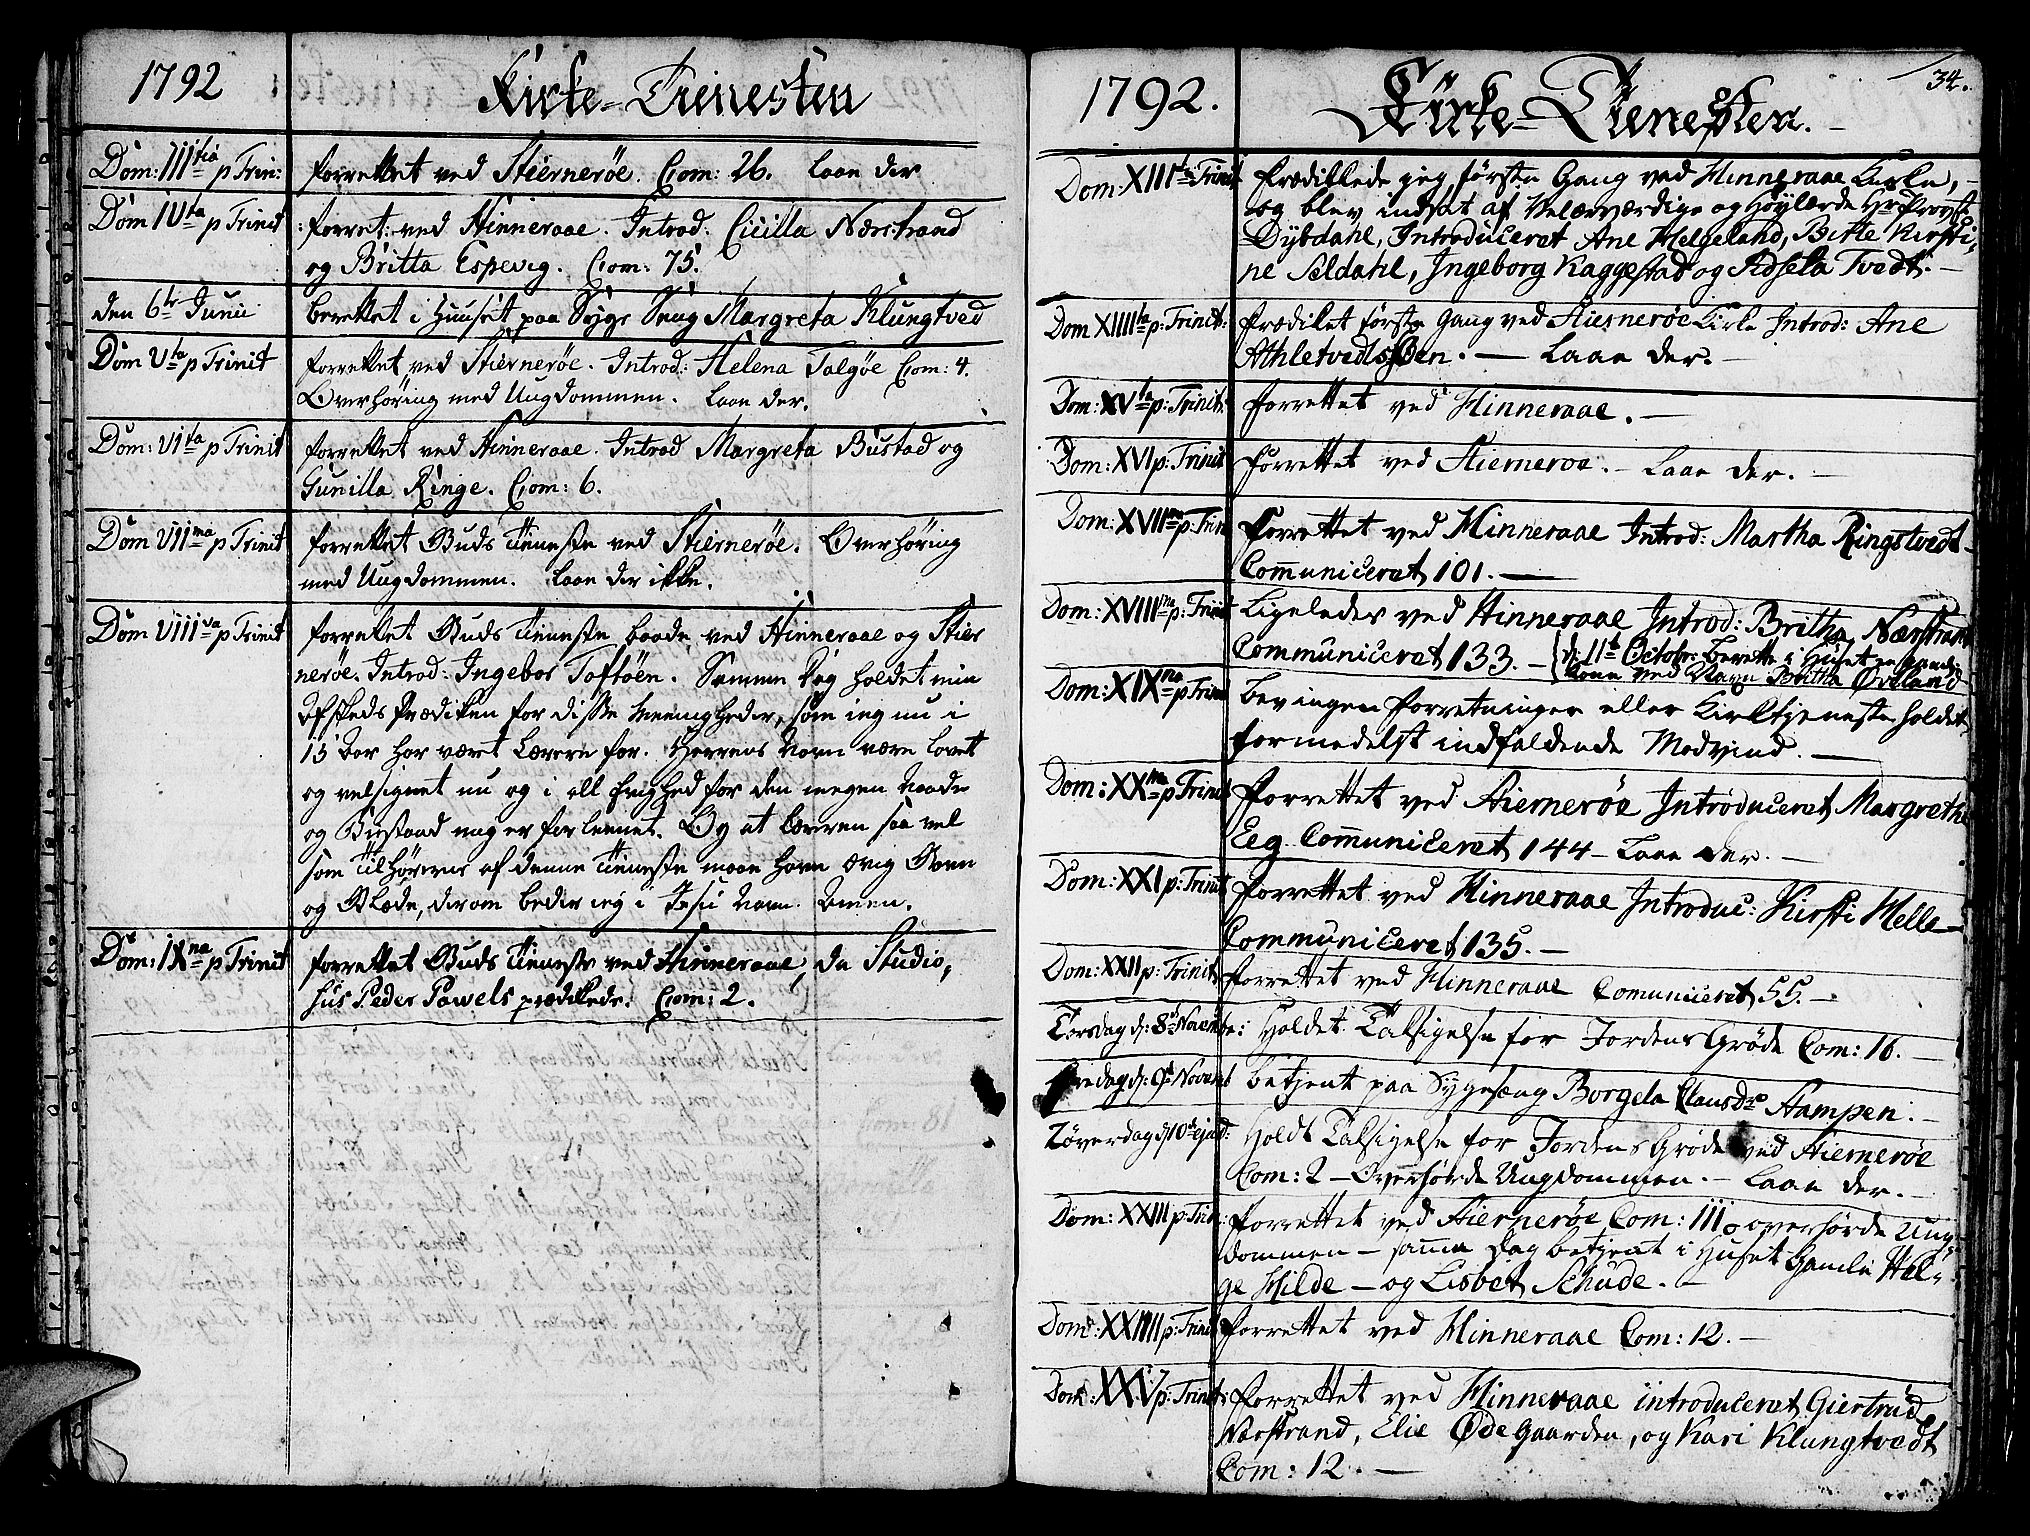 1792 Kirke-Tienesten
Dom: III tia p Trin: forrettet ved Stierneröe. Com: 26. laae der
Dom IV ta p Trinit forret: ved Hinneraae. Introd. Cicilla Nærstrand
og Britta Espevig. Com: 75.
den 6te Junii berettet i Huuset paa Syge Seng Margreta Klungtved
Dom V ta p Trinit forrettet ved Stierneröe. Introd: Helena Talgöe Com: 4.
Overhöring med Ungdommen. laae der.
Dom: VI ta p Trinit forrettet ved Hinneraae. Introd Margreta Bustad og
Gunilla Ringe. Com: 6.
Dom VII ma p Trinit forrettet Guds Tieneste ved Stierneröe. Overhöring
med Ungdommen. laae der ikke.
Dom VIII va p Trinit forrettet Guds Tieneste baade ved Hinneraae og Stier
neröe. Introd: Ingebor Toftöen. Samme Dag holdet min
Afskeds Prædiken for disse Meenigheder, som ieg nu i
15 Aar har været Lærere for. Herrens Navn være lovet
og velsignet nu og i all Evighed for den megen Naade
og Bistand mig er forleenet. Og at Læreren saa vel
som Tilhörerne af denne Tieneste maae have ævig Gavn
og Glæde, derom beder ieg i Jesu Navn. Amen.
Dom: IX na p Trinit forrettet Guds Tieneste ved Hinneraae, da Studio,
sus Peder Pawels prædikede. Com: 2.
1792. Kirke-Tienesten. 34.
Dom: XIII ta: Trinit Prædikede jeg første Gang ved Hinneraae Kirke,
og blev indsat af Velærværdige og Høylærde Hr Provst
Dybdahl, Introduceret Ane Helgeland, Birte Kirsti,
ne Seldahl, Ingeborg Kaggestad og Adsela Tvedt.
Dom XIIII ta p: Trinit: Prædiket første Gang ved Hiernerøe Kirke Introd: Ane
Athletvedtsøen. — Laae der.
Dom: XV ta p: Trinit: Forrettet ved Hinneraae.
Dom: XVI p: Trinit Forrettet ved Hierneroe. — Laae der.
Dom: XVII ma p: Trin Forrettet ved Hinneraae Introd: Martha Ringstvedt
Communiceret 101.
Dom: XVIII ma p: Trinit Ligeledes ved Hinneraae Introd: Britha Nærstrand
Communiceret 133. — d: 11te Octobr: Berette i Huset en
Kone ved Navn Britha Øveland
Dom: XIX na p Trinit Blev ingen Forretninger eller Kirketjeneste holdet
formedelst indfaldende Modvind.
Dom: XX ma p Trinit Forrettet ved Hiernerøe Introduceret Margrethe
Eeg Communiceret 144 — Laae der.
Dom: XXI p: Trinit Forrettet ved Hinneraae Introduc: Kirsti Helle
Communiceret 135.
Dom: XXII p: Trinit Forrettet ved Hinneraae Comuniceret 55.
Torsdag d: 8de Novembe: Holdet Taksigelse for Jordens Grøde Com: 16.
Fredag d: 9de Novemb betjent paa Sygesæng Borgela Clausdr Hampen.
Løverdag d 10de ejusd: Holdt Taksigelse for Jordens Grøde ved Hiernerøe
Com: 2 — Overhørde Ungdommen. — Laae der.
Dom: XXIII p: Trin: Forrettet ved Hiernerøe Com: 111. overhørde Ung-
dommen — samme Dag betjent i Huset Gamle Hel,
ge Hilde — og Lisbet Schude.
Dom: XXIIII p: Trinit Forrettet ved Hinneraae Com: 12.
Dom: XXV p: Trinit: Forrettet ved Hinneraae introduceret Giertrud
Nærstrand, Elie Ødegaarden, og Kari Klungtvedt
Com: 12.